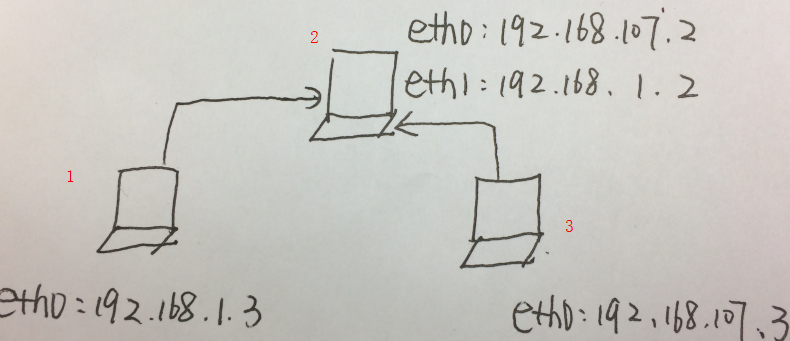 2
eth0:192.168.107.2
eth1:192.168.1.2
1
3
eth0:192.168.1.3
eth0:192.168.107.3